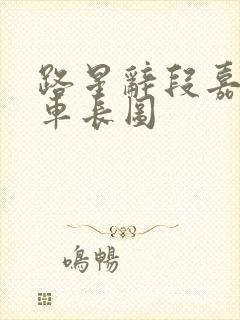 路星辭段嘉
車長圖
鳴暢